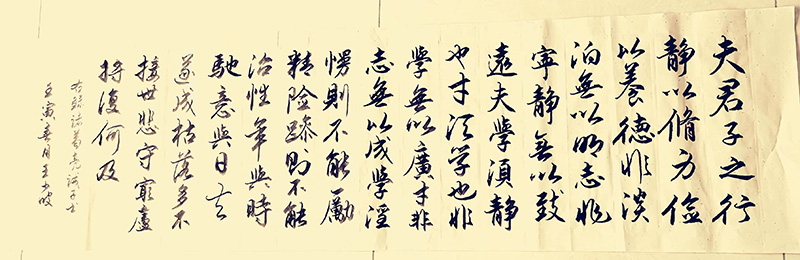 夫君子之行
静以脩身俭
以養德非淡
泊無以明志非
寧静無以致
遠夫學須静
也才須学也非
學無以廣才非
志無以成學淫
慢則不能勵
精险躁則不能
治性年與時
馳意與日去
遂成枯落多不
接世悲守窮廬
將復何及
右録诸葛亮诫子书
壬寅春月王